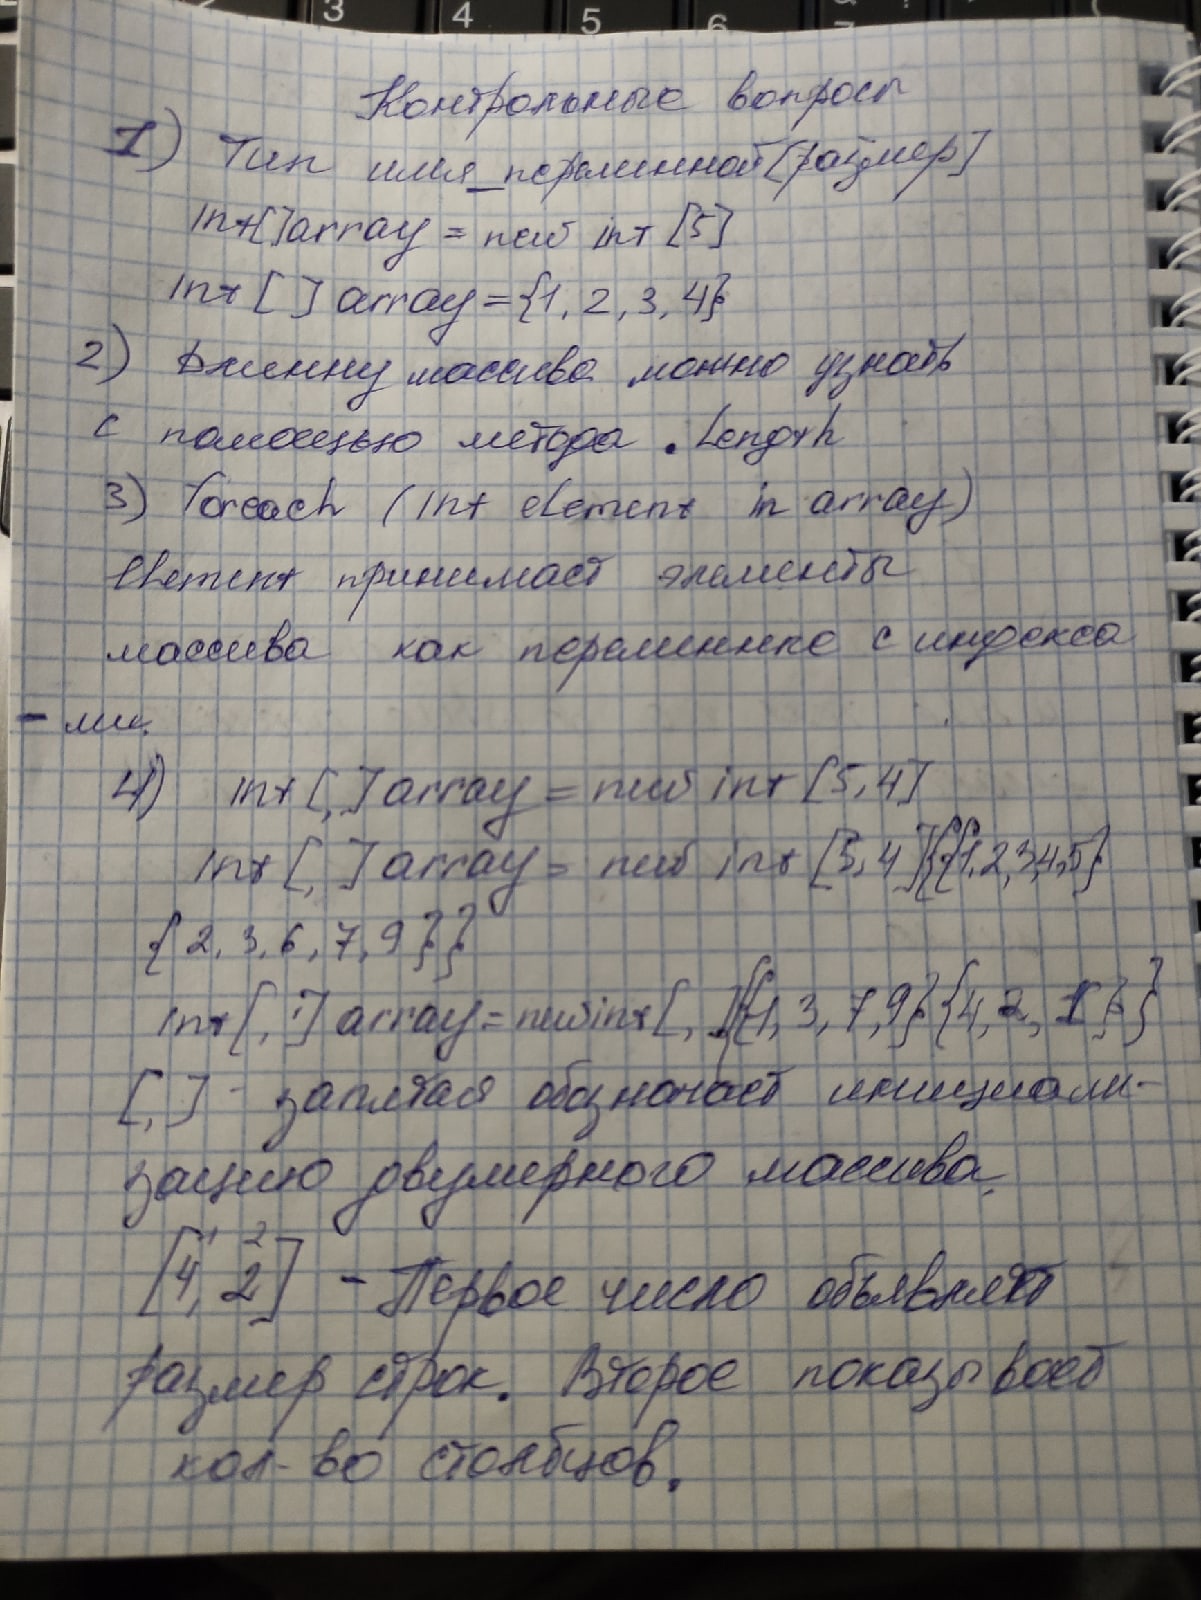 3 4 5 6
Контрольные вопросы
1) Тип имя_переменной [размер]
int[] array = new int [5]
int [ ] array = {1, 2, 3, 4}
2) Длинну массива можно узнать
с помощью метода .Length
3) foreach (int element in array)
Element принимает элементы
массива как переменные с индекса
- ми.
4) int [,] array = new int [5,4]
int [,] array = new int [5,4]{{1,2,3,4,5}
{2,3,6,7,9}}
int [,] array = new int [,]{{1,3,7,9}{4,2,1}}
[,] - запятая обозначает инициали-
зацию двумерного массива.
1 2
[4, 2] - Первое число объявляет
размер строк. Второе показывает
кол-во столбцов.